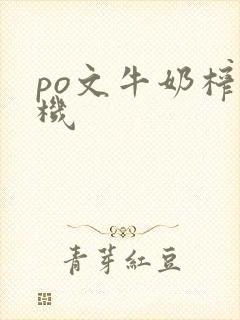 po文牛奶榨
機
青芽紅豆